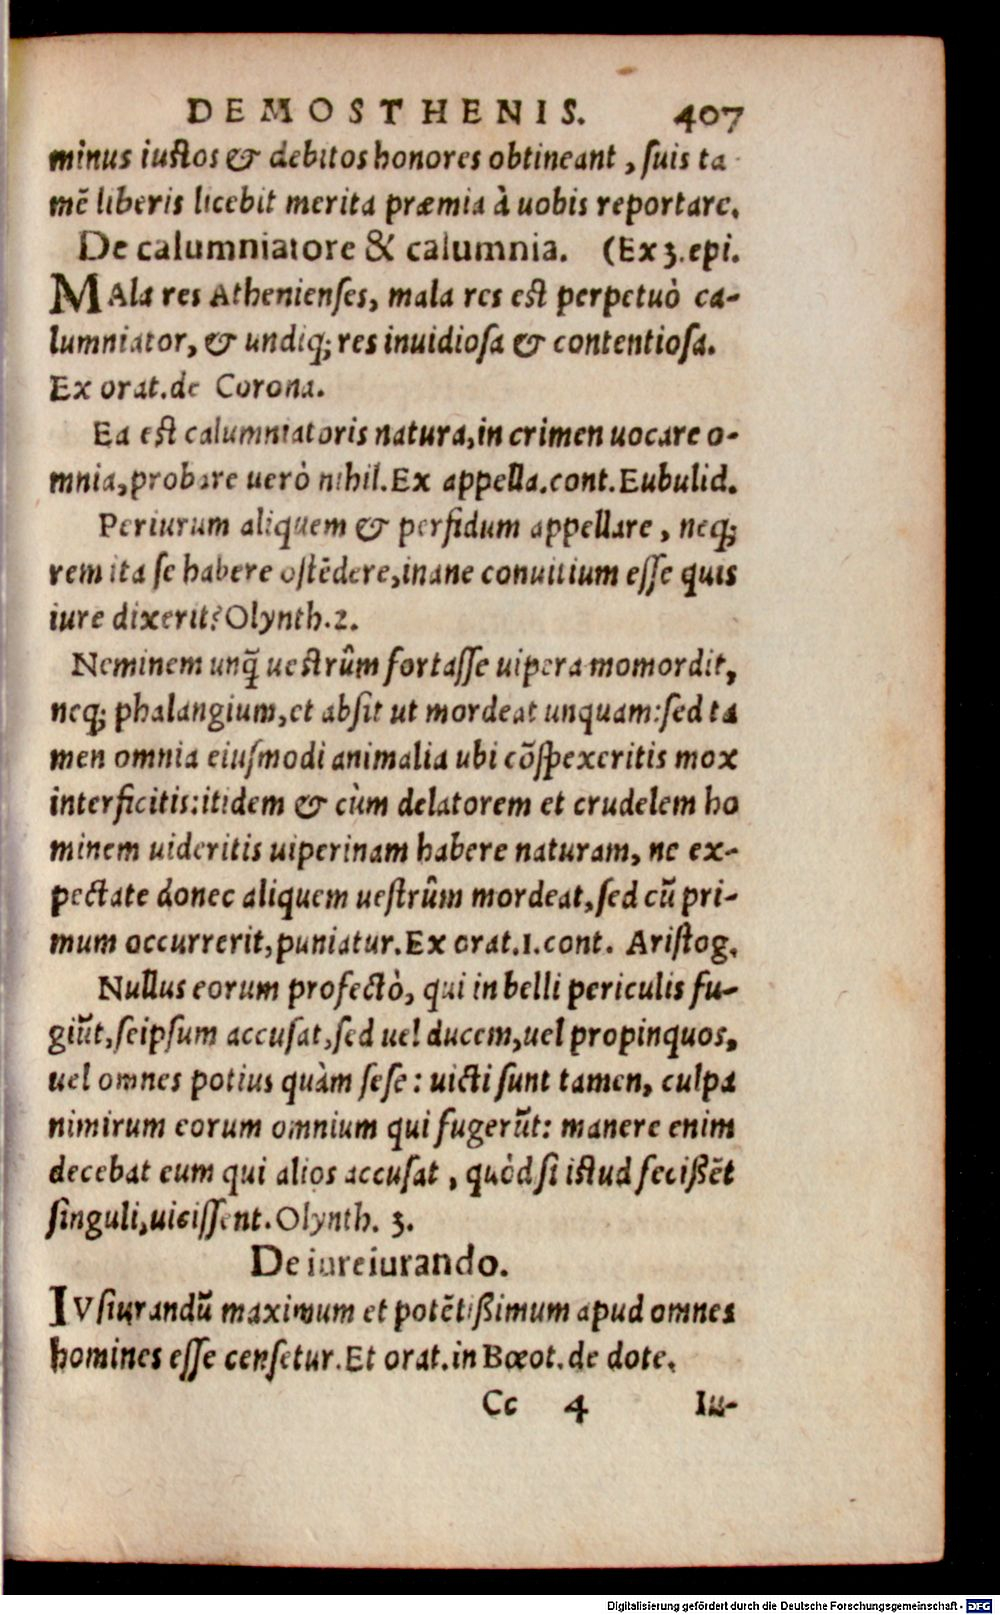 DEMOSTHENIS. 407
minus iustos & debitos honores obtineant, suis ta
mẽ liberis licebit merita præmia à uobis reportare.
De calumniatore & calumnia. (Ex 3. epi.
MAla res Athenienses, mala res est perpetuò ca-
lumniator, & undiq; res inuidiosa & contentiosa.
Ex orat. de Corona.
Ea est calumniatoris natura, in crimen uocare o-
mnia, probare uerò nihil. Ex appella. cont. Eubulid.
Periurum aliquem & perfidum appellare, neq;
rem ita se habere ostẽdere, inane conuitium esse quis
iure dixerit? Olynth. 2.
Neminem unq̃ uestrûm fortasse uipera momordit,
neq; phalangium, et absit ut mordeat unquam: sed ta
men omnia eiusmodi animalia ubi cõspexeritis mox
interficitis: itidem & cùm delatorem et crudelem ho
minem uideritis uiperinam habere naturam, ne ex-
pectate donec aliquem uestrûm mordeat, sed cũ pri-
mum occurrerit, puniatur. Ex orat. 1. cont. Aristog.
Nullus eorum profectò, qui in belli periculis fu-
giũt, seipsum accusat, sed uel ducem, uel propinquos,
uel omnes potius quàm sese: uicti sunt tamen, culpa
nimirum eorum omnium qui fugerũt: manere enim
decebat eum qui alios accusat, quòd si istud fecißẽt
singuli, uicissent. Olynth. 3.
De iureiurando.
IVsiurandũ maximum et potẽtißimum apud omnes
homines esse censetur. Et orat. in Bœot. de dote.
Cc 4 Iu-
Digitalisierung gefördert durch die Deutsche Forschungsgemeinschaft - DFG